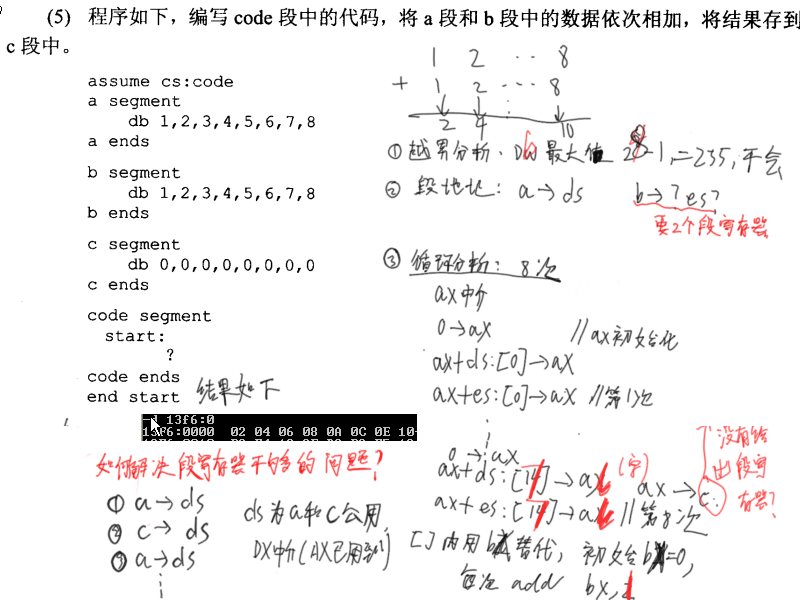 (5) 程序如下，编写 code 段中的代码，将 a 段和 b 段中的数据依次相加，将结果存到
c 段中。
assume cs:code
a segment
db 1,2,3,4,5,6,7,8
a ends
b segment
db 1,2,3,4,5,6,7,8
b ends
c segment
db 0,0,0,0,0,0,0,0
c ends
code segment
start:
?
code ends
end start 结果如下
-d 13f6:0
13F6:0000 02 04 06 08 0A 0C 0E 10-
如何解决段寄存器不够的问题?
① a→ds
② c→ds
③ a→ds
⋮
ds为a和c公用,
DX中介(AX已用到)
1 2 ·· 8
+ 1 2 ··· 8
2 4 10
① 越界分析: 最大值 2⁸-1,=255,不会
② 段地址: a→ds b→?es?
要2个段寄存器
③ 循环分析: 8次
ax中介
0→ax //ax初始化
ax+ds:[0]→ax
ax+es:[0]→ax //第1次
⋮
0→ax
ax+ds:[14]→ax (字)
ax+es:[14]→ax //第8次
ax→c:
没有给
出段寄
存器?
[]内用bx替代, 初始bx=0,
每次 add bx,